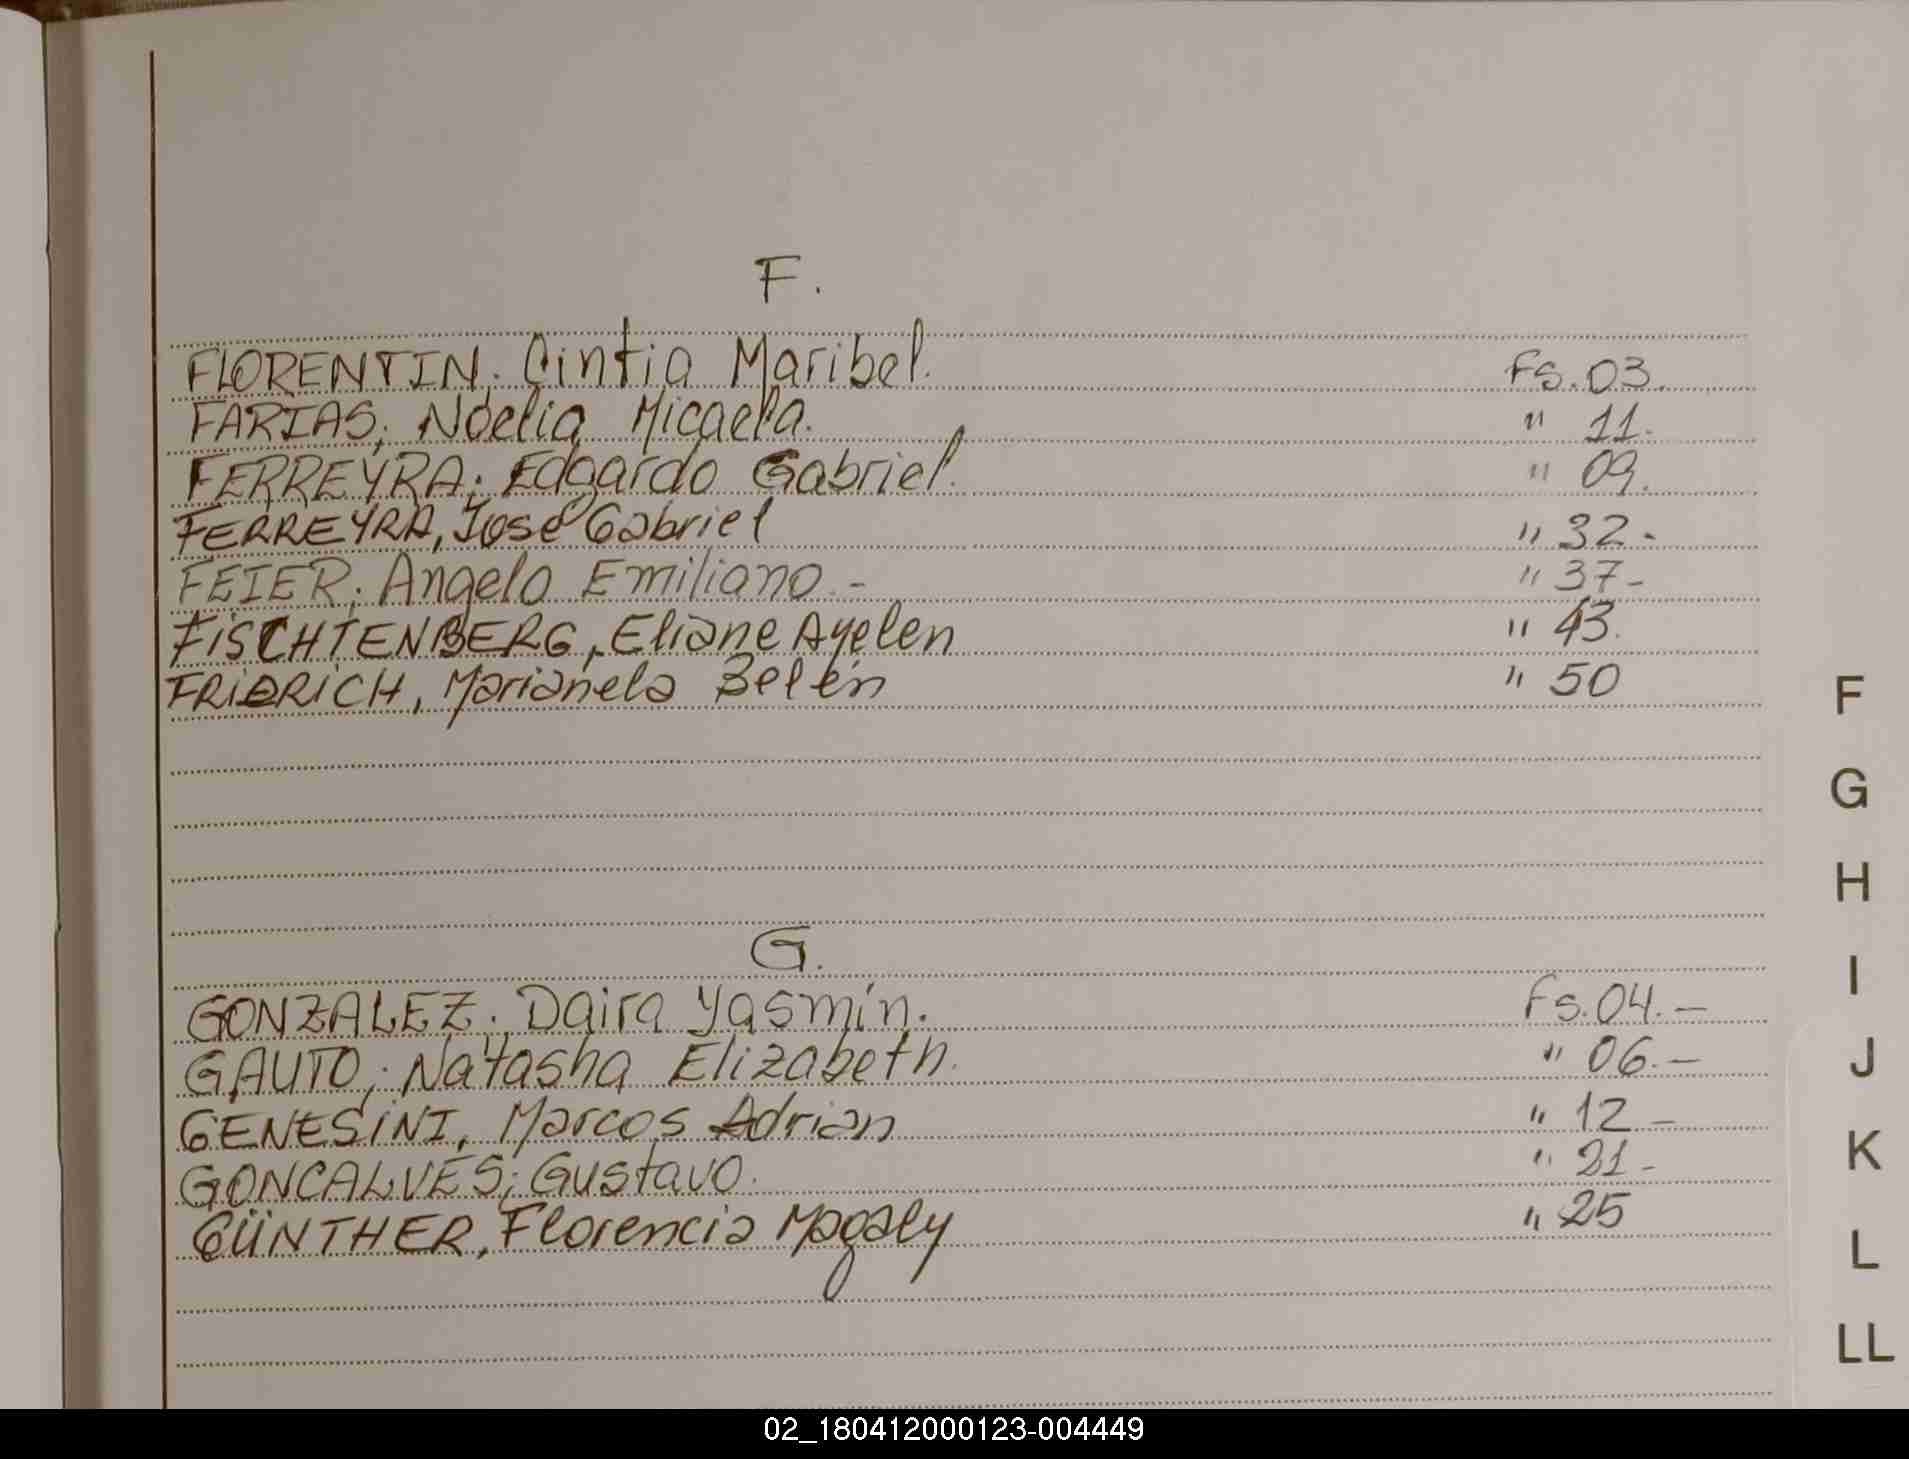 F.
FLORENTIN. Cintia Maribel. Fs. 03.
FARIAS; Noelia Micaela. " 11.
FERREYRA; Edgardo Gabriel. " 09.
FERREYRA, José Gabriel " 32-
FEIER; Angelo Emiliano.- " 37-
FISCHTENBERG, Eliane Ayelen " 43.
FRIERICH, Marianela Belén " 50
G.
GONZALEZ. Daira Yasmín. Fs. 04.-
GAUTO; Natasha Elizabeth. " 06.-
GENESINI, Marcos Adrian " 12-
GONCALVES; Gustavo. " 21-
GÜNTHER, Florencia Magaly " 25
F
G
H
I
J
K
L
LL
02_180412000123-004449